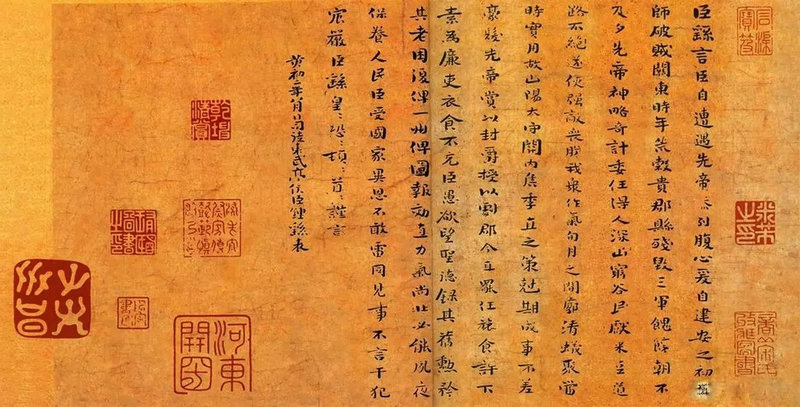 臣繇言臣自遭遇先帝忝列腹心爰自建安之初王
師破賊關東時年荒穀貴郡縣殘毀三軍餽饟朝不
及夕先帝神略奇計委任得人深山窮谷民獻米豆道
路不絕遂使強敵喪膽我眾作氣旬月之間廓清蟻聚當
時實用故山陽太守關內侯季直之策尅期成事不差
豪髮先帝賞以封爵授以劇郡今直罷任旅食許下
素為廉吏衣食不充臣愚欲望聖德錄其舊勳矜
其老困復俾一州俾圖報効直力氣尚壯必能夙夜
保養人民臣受國家異恩不敢雷同見事不言干犯
宸嚴臣繇皇〻恐〻頓〻首〻謹言
黃初二年八月日司徒東武亭侯臣鍾繇表
石渠寶笈
米芾之印
乾隆清賞
河東開國